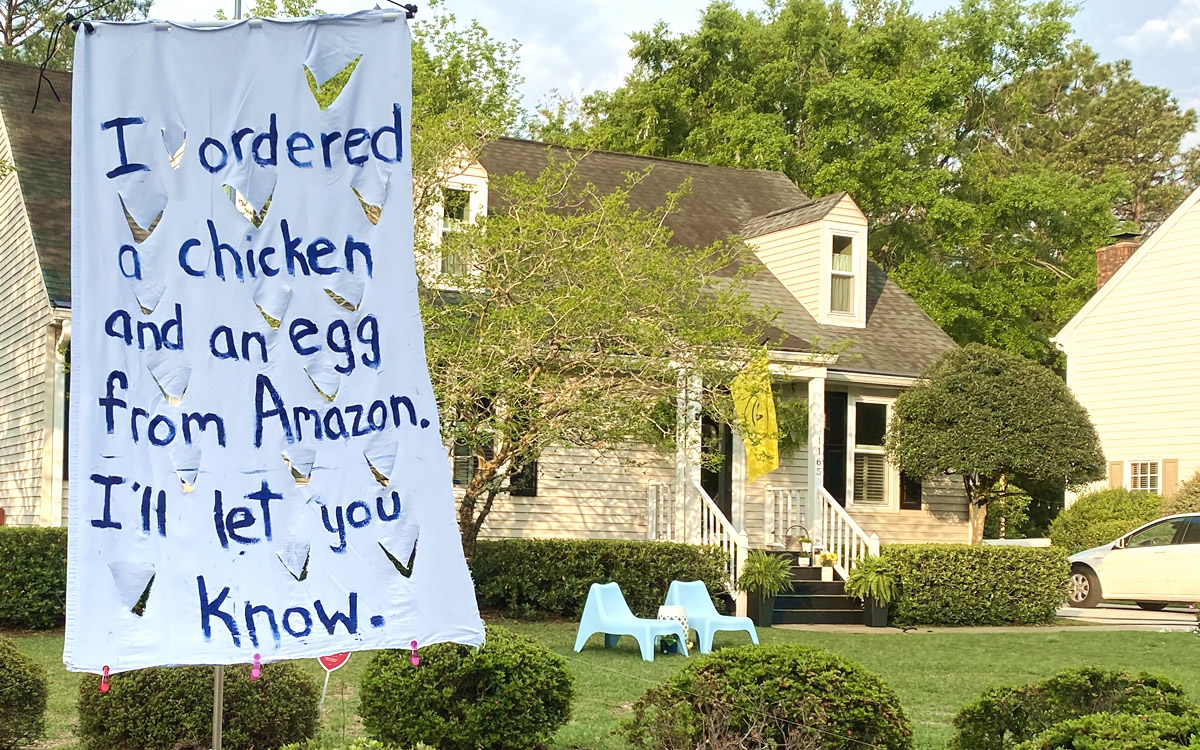 I ordered
a chicken
and an egg
from Amazon.
I'll let you
know.
1165